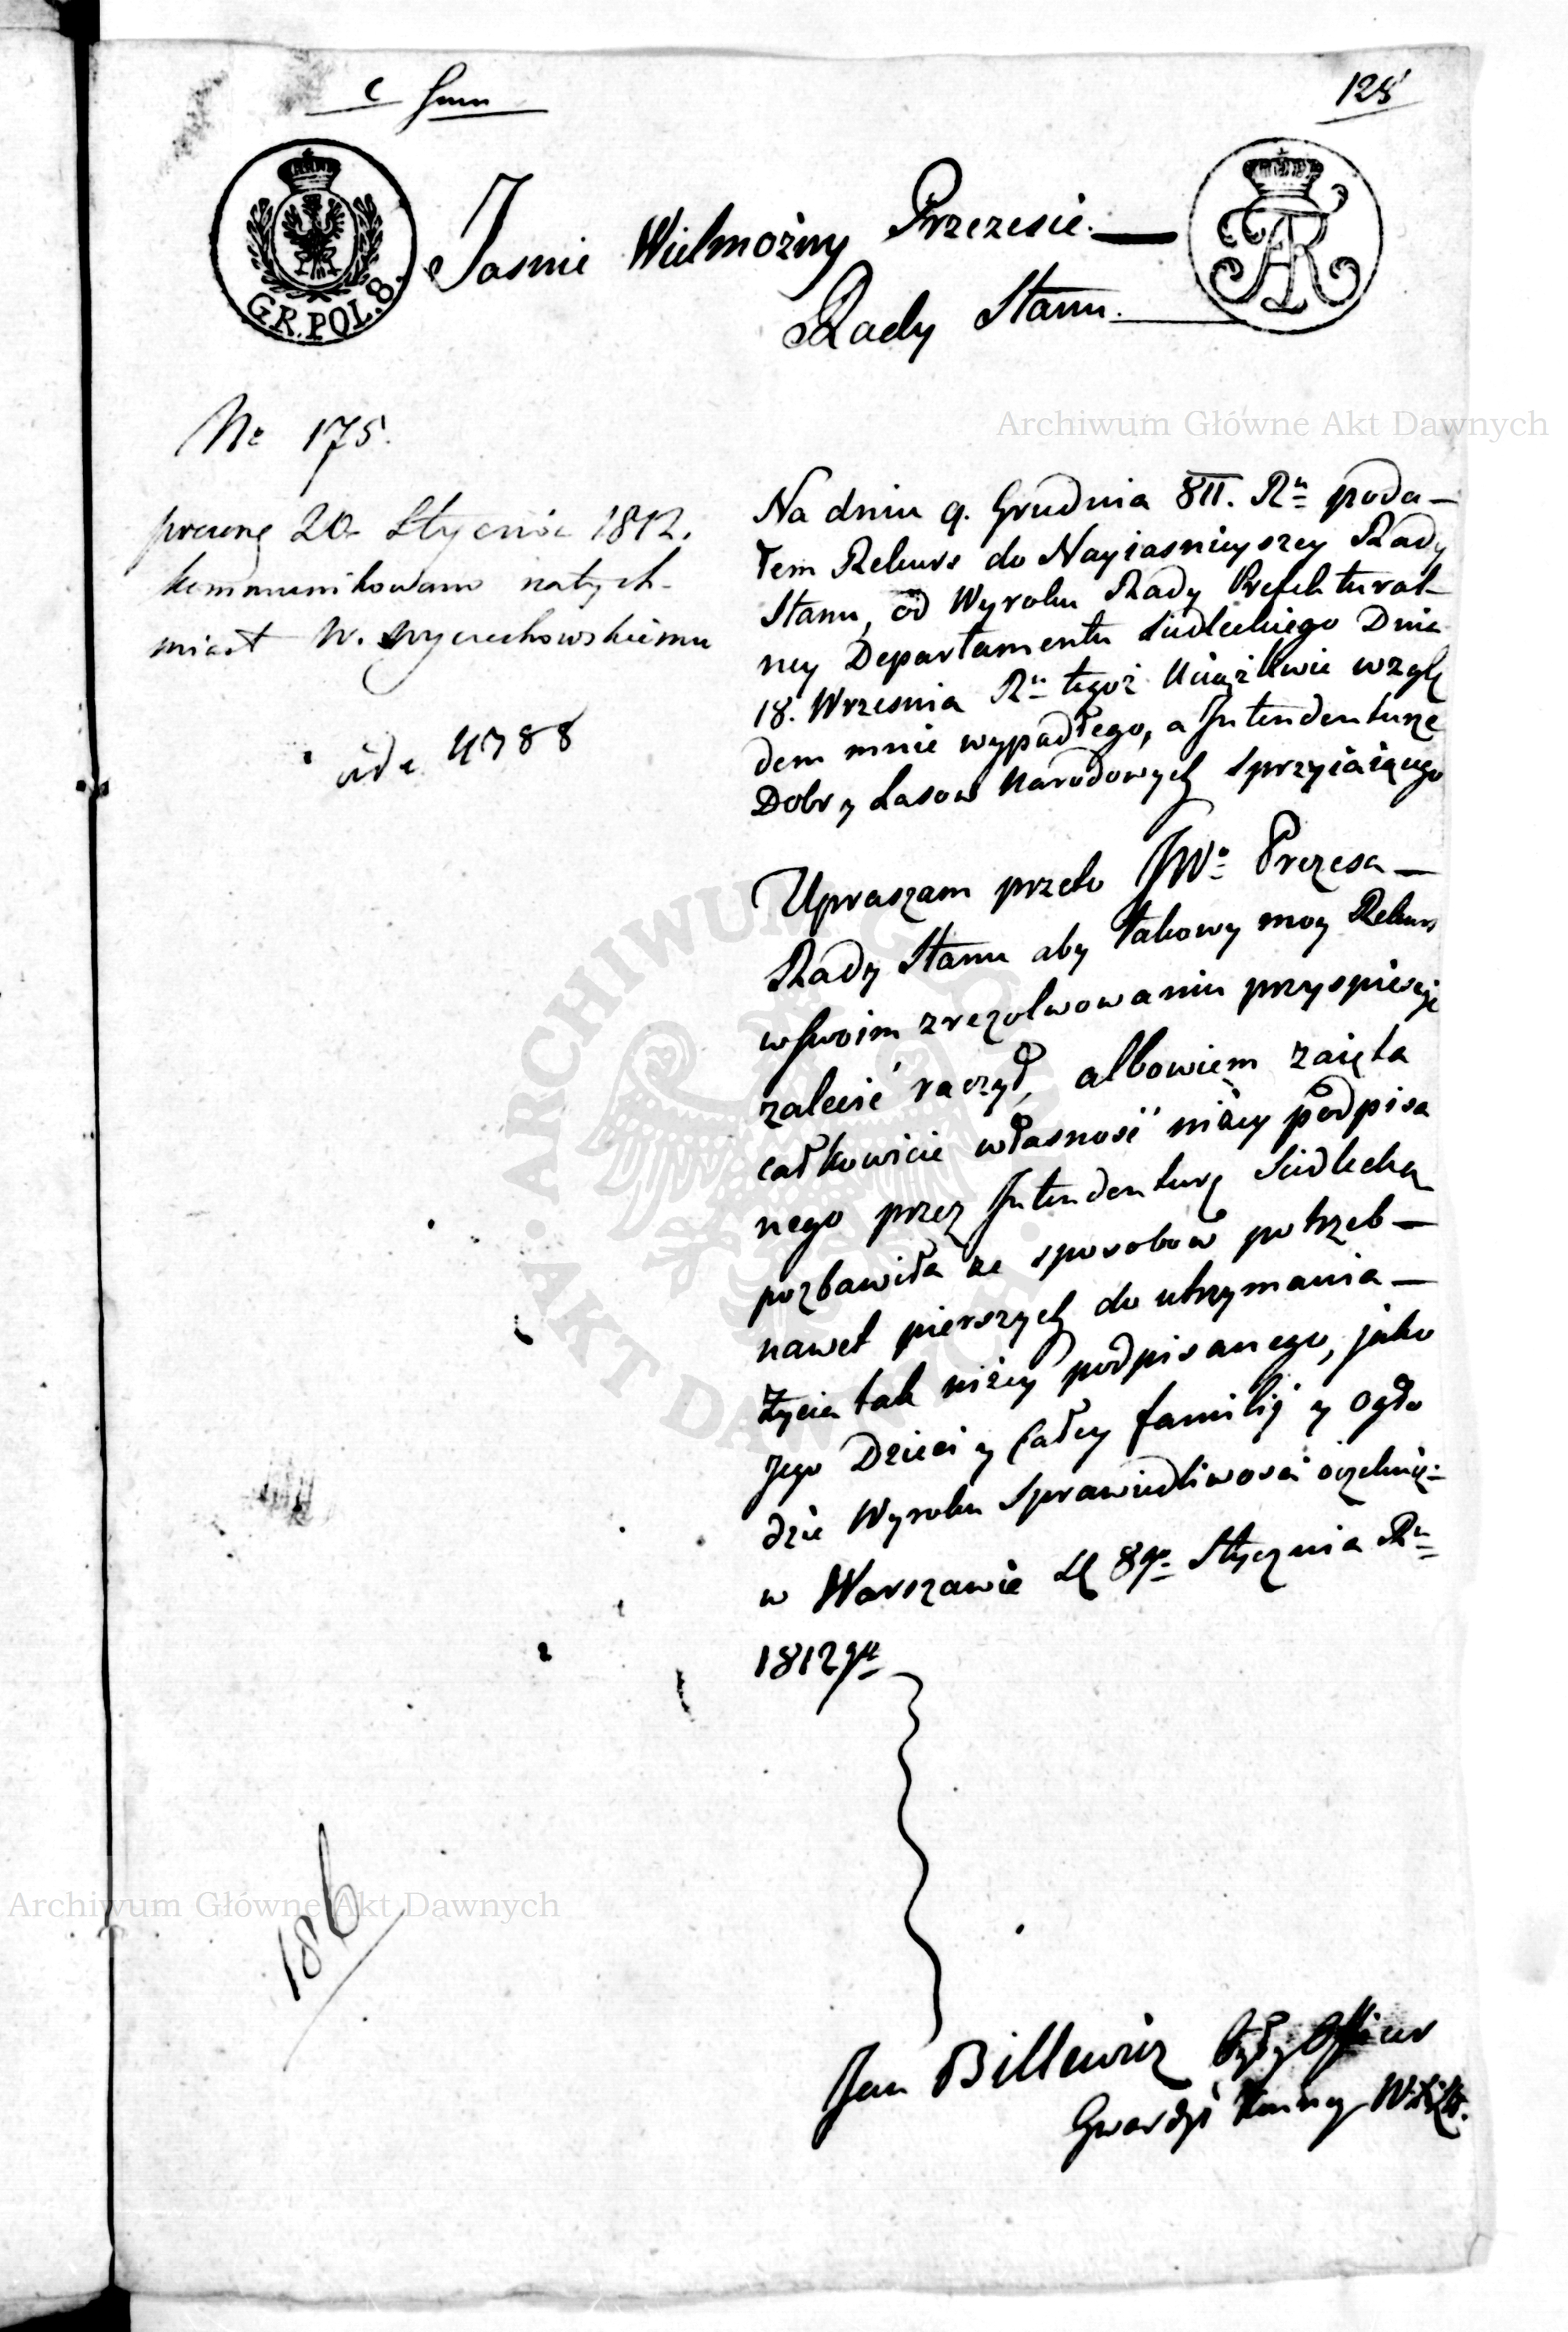 128
GR. POL. 8.
Jasnie Wielmożny Przezesie.
Rady Stanu.
Archiwum Główne Akt Dawnych
Nº 175.
20 Stycznia 1812.
kommunikowano natych-
miast W. Wyczechowskiemu
4788
Na dniu 9. Grudnia 811. Rᵘ poda-
łem Rekurs do Nayiasnieyszey Rady
Stanu, od Wyroku Rady Prefektural-
ney Departamentu Siedleckiego Dnia
18. Wrzesnia Rᵘ tegoż Uciążliwie wzglę
dem mnie wypadłego, a Intendenturze
Dobr y Lasow Narodowych sprzyiaiącego
Upraszam przeto JWº Prezesa
Rady Stanu aby takowy moy Rekurs
w swoim zrezolwowaniu przyspieszyć
zalecić raczył, albowiem zaięta
całkowicie własność niżey podpisa
nego przez Intendenturę Siedlecką
pozbawiła ze sposobow potrzeb-
nawet pierszych do utrzymania
Życia tak niżey podpisanego, jako
Jego Dzieci y całey familij y
dzie Wyroku Sprawiedliwosci
w Warszawie D. 8go Stycznia Rᵘ
1812go
ARCHIWUM GŁÓWNE
AKT DAWNYCH
Archiwum Główne Akt Dawnych
186
Jan Billewicz były Officer
Gwardyi